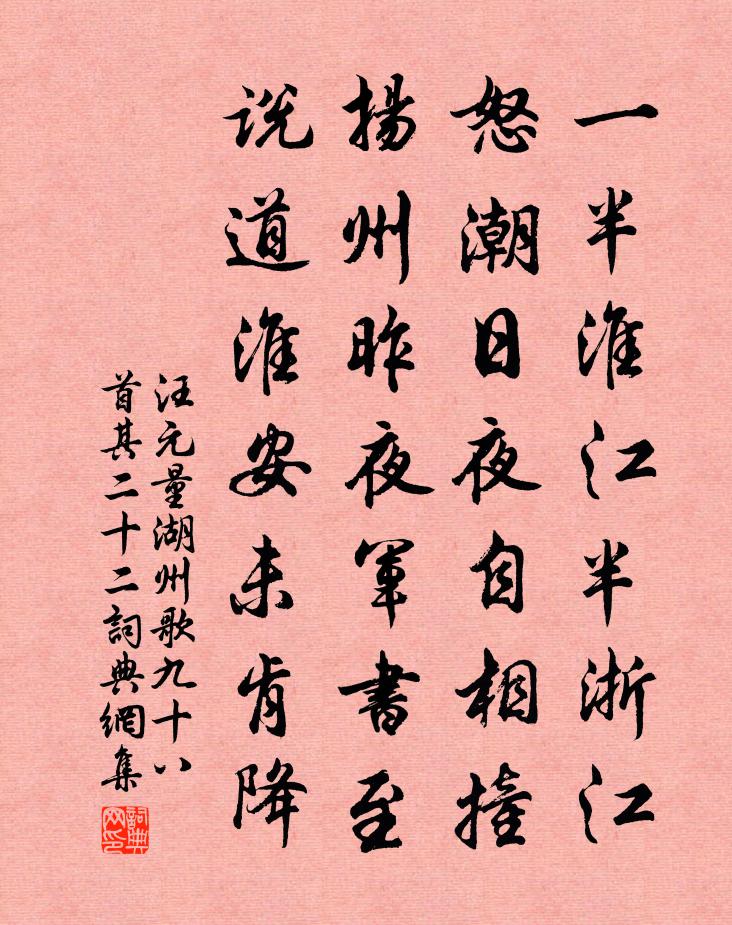 一半淮江半浙江
怒潮日夜自相撞
揚州昨夜軍書至
說道淮安未肯降
汪元量湖州歌九十八
首其二十二詞典網集
詞典
网印